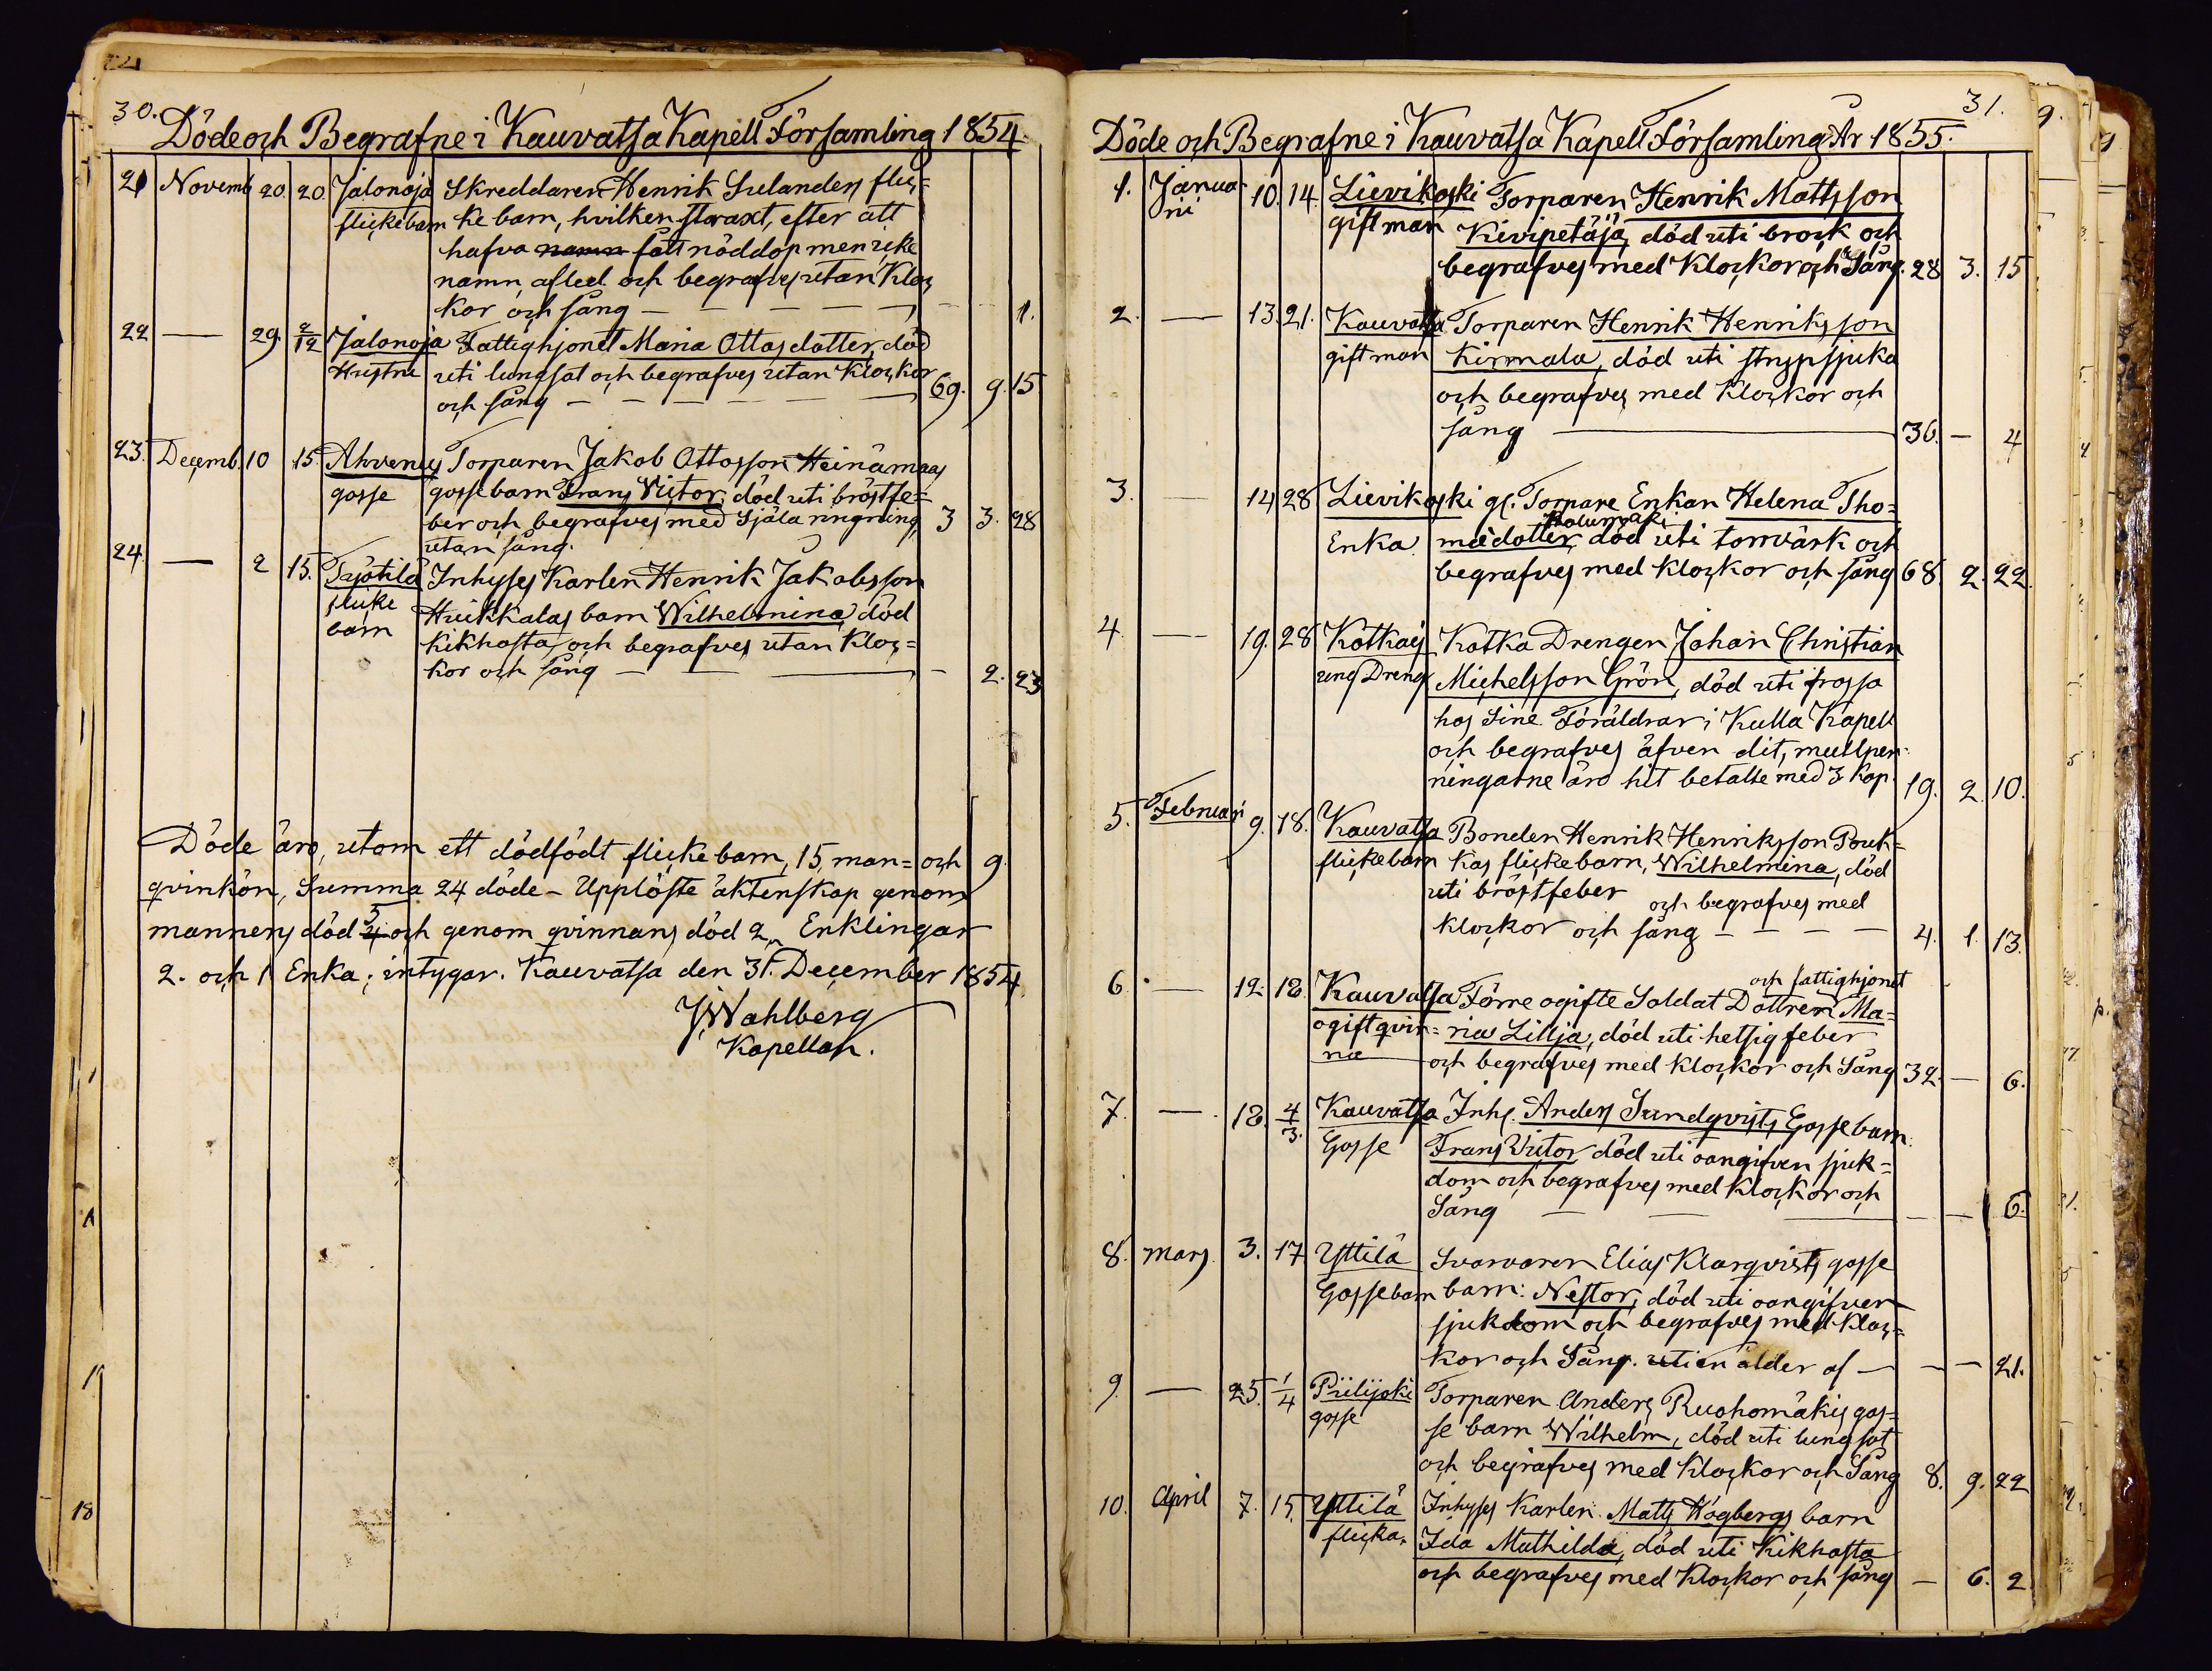 30.
Döde och Begrafne i Kauvatsa Kapell Församling 1854.
21 Novemb 20. 20. Jalonoja Skreddaren Henrik Sulanders flic=
flickebarn ke barn, hvilken straxt, efter att
hafva namn fått nöddop men icke
namn, afled och begrafves utan Kloc
kor och sång — — — — 1.
22 — 29. 2/12 Jalonoja Fattighjonet Maria Ottosdotter, död
Hustru uti lungsot och begrafves utan Klockor
och sång — — — — 69. 9. 15.
23. Decemb. 10 15. Ahvenus Torparen Jakob Ottosson Heinämaas
gosse gossebarn Frans Victor, död uti bröstfe=
ber och begrafves med Själaringning, 3 3. 28
utan sång.
24. — 2 15. Inhyses Karlen Henrik Jakobsson
flicke Huikkalas barn Wilhelmina, död
barn kikhosta, och begrafves utan Kloc=
kor och sång — — — — 2. 23
Döde äro, utom ett dödfödt flickebarn, 15, man= och 9.
qvinkön, Summa 24 döde – Upplöste äktenskap genom
mannens död 4 5 och genom qvinnans död 2, Enklingar
2. och 1 Enka; intygar. Kauvatsa den 31. December 1854
J. Wahlberg
Kapellan.
31.
Döde och Begrafne i Kauvatsa Kapell Församling År 1855.
1. Janua- 10. 14. Lievikoski Torparen Henrik Mattsson
rii gift man Kivipetäjä, död uti brock och
begrafves med Klockor och Sång. 28 3. 15
2. — 13. 21. Kauvatsa Torparen Henrik Henriksson
gift man Kirmala, död uti strypsjuka
och begrafves med Klockor och
sång — 36. — 4
3. — 14 28 Lievikoski gl. Torpare Enkan Helena Tho=
Enka mædotter, död uti torrvärk och
begrafves med klockor och sång 68. 2. 22.
4. — 19. 28 Kotkais Kotka Drengen Johan Christian
ung Dreng Michelsson Grön, död uti frossa
hos Sine Föräldrar i Kulla Kapell
och begrafves äfven dit, mullpen=
ningarne äro hit betalte med 3 Kop. 19. 2. 10.
5. Februari 9. 18. Kauvatsa Bonden Henrik Henriksson Pouk=
flickebarn kas flickebarn, Wilhelmina, död
uti bröstfeber och begrafves med
klockor och sång — — — — 4. 1. 13.
och fattighjonet
6. — 12. 18. Kauvatsa Förre ogifte Soldat Dottren Ma=
ogift qvin= ria Lillja, död uti hetsig feber
na och begrafves med klockor och Sång 32. — 6.
7. — 18. 4/3. Kauvatsa Inhs. Anders Sundqvists Gossebarn
Gosse Frans Victor, död uti oangifven sjuk=
dom och begrafves med Klockor och
Sång — — — — — 6.
8. Mars 3. 17. Yttilä Svarvaren Elias Klarqvists gosse
Gossebarn barn: Nestor, död uti oangifven
sjukdom och begrafves med Kloc=
kor och Sång. uti en ålder af — — — 21.
9. — 25. 1/4 Piilijoki Torparen Anders Ruohomäkis gos=
gosse se barn Wilhelm, död uti lungsot
och begrafves med Klockor och Sång 8. 9. 22
10. April 7. 15. Yttilä Inhyses Karlen Matts Högbergs barn
flicka. Ida Mathilda, död uti Kikhosta
och begrafves med Klockor och sång — 6. 2